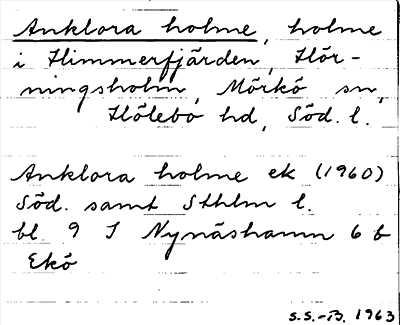 Anklora holme, holme
i Himmerfjärden, Hör-
ningsholm, Mörkö sn,
Hölebo hd, Söd. l.
Anklora holme ek (1960)
Söd. samt Sthlm l.
bl. 9 I Nynäshamn 6 b
Ekö
S.S.-B. 1963